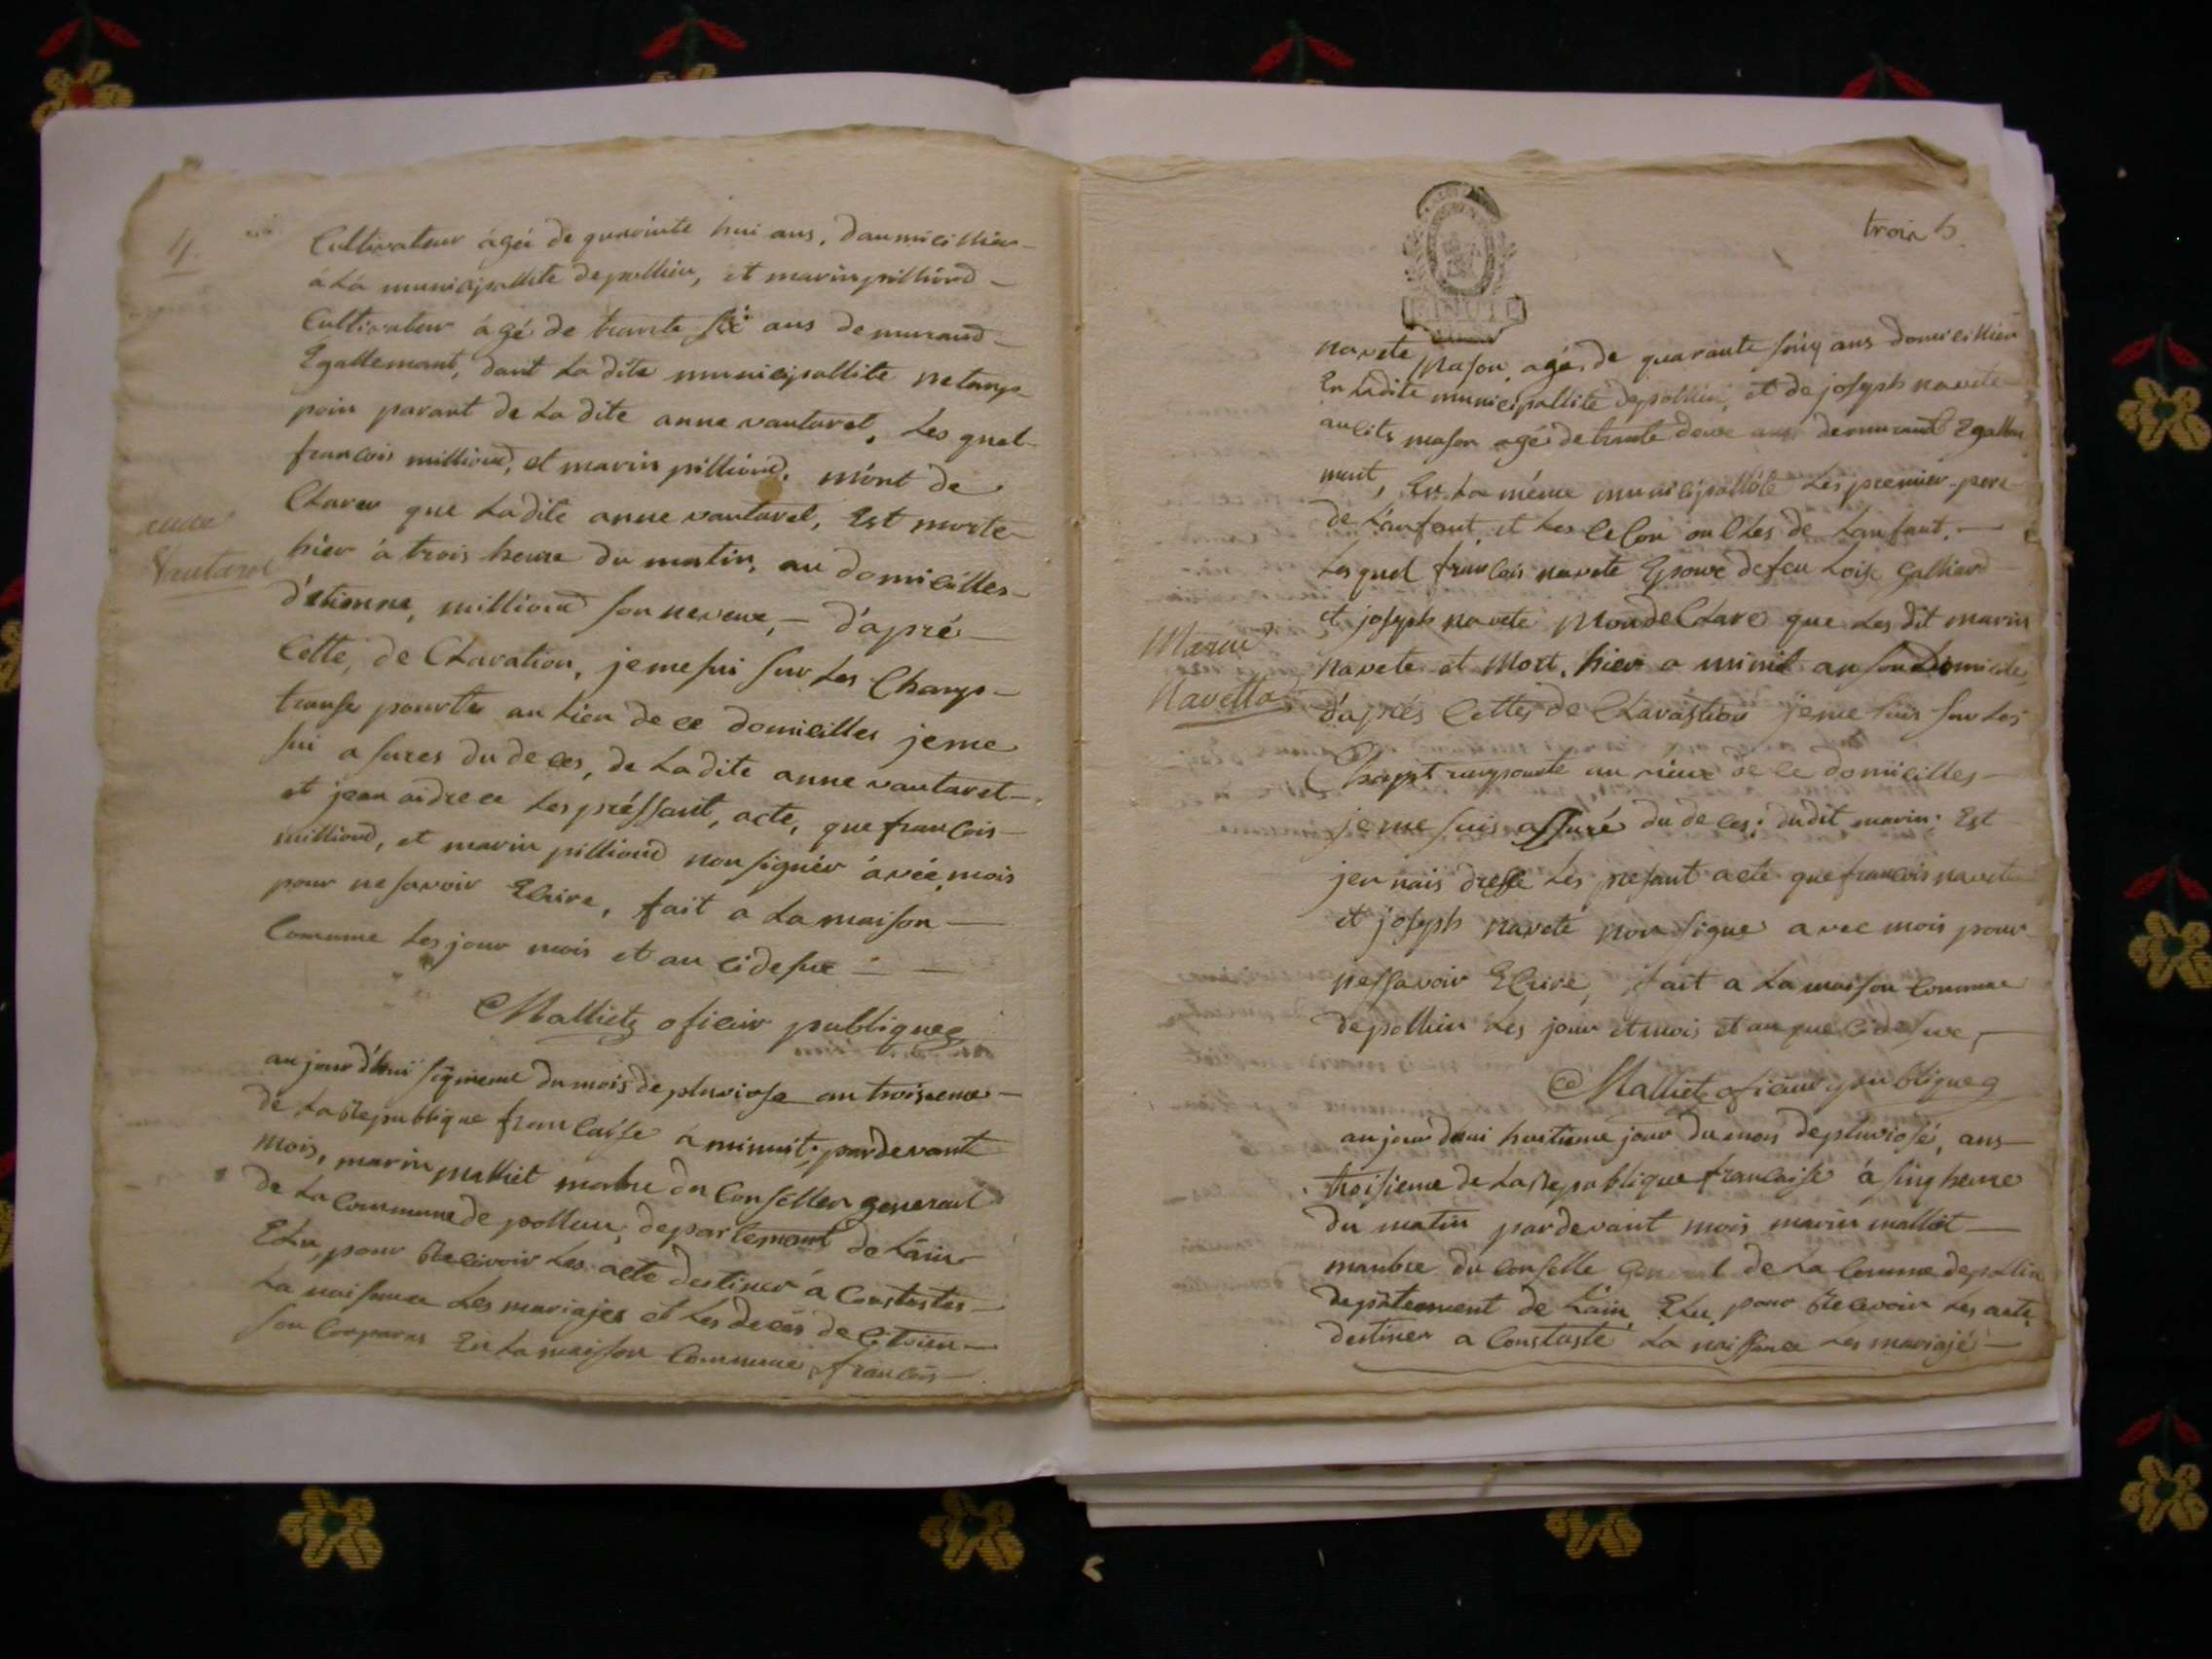 4.
Cultivateur agé de quarinte hui ans, daumicillier
a La municipallite depollieu, et marin pilliond
Cultivateur agé de trante six ans demurand
Egallemant, dant La dite municipallite netamp
poin parant de La dite anne vautaret, Les quel
francois milliond, et marin pilliond, m'ont de
Clarer que Ladite anne vautaret, Est morte
hier à trois heure du matin, au domicilles
d'etienne, milliond son neveux, d'apré
Cette, de Claration, jeme sui sur Les Champ
transe pourte au Lieu de ce domicilles jeme
sui a sures du de ces, de Ladite anne vautaret
et jean aidree Les préssant, acte, que francois
milliond, et marin pilliond non signér àvéc mois
pour nesavoir Ecrire, fait a La maison
Commune Les jour mois et an cidesue
Malliet oficiir publiques
Vautaret
aujourd'hui siqieme dumois depluviose an troisieme
de La Republique francaise a minuit, pardevant
mois, marin malliet manbre du Conseller generaul
de La Commune de pollieu, departement de Lain
Elu, pour Recivoir Les acte destiner à Constater
La naisance Les mariages et Les deces de Citoien
son Conparus En La maison Commune, francois
trois 5
navete Mason, agé de quarante sinq ans domicillien
En Ladite municipallite depollieu, et de joseph navete
aucits mason agé de trante deux ans demurand Egalle
ment, En La méme municipallité Les premier pere
de L'anfant et Les oncles de Lanfant.
Les quel francois navete Epoux defeu Loise Galliard
et joseph navete Mon de Clare que Les dit marin
navete et Mort, hier a minit au son domicile
d'aprés Cettes de Claration jeme suis sur Les
Champt ranpourte au Lieux de ce domicilles
jeme suis assuré du de ces, dudit marin. Est
jen nais dressé Les presant acte que francois navete
et joseph naveté non signe avec mois pour
nessavoir Ecrire, fait a La maison Commune
depollieu Les jour et mois et an que cidesue,
Malliet oficiir publiques
Marin
Navetta
aujourdhui huitieme jour du mois depluviosé, ans
troisieme de La Republique francaise à sinq heure
du matin pardevant mois marin malliet
manbre du Conselle General de La Comune depollieu
depatement de Lain, Elu, pour Recevoir Les acte
destiner a Constaté La naissance Les mariajé